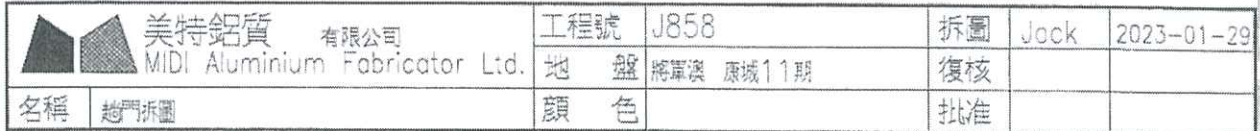 美特鋁質 有限公司
MIDI Aluminium Fabricator Ltd.
工程號 J858
拆圖 Jack 2023-01-29
地 盤 將軍澳 康城11期
復核
名稱 趟門拆圖
顏 色
批准